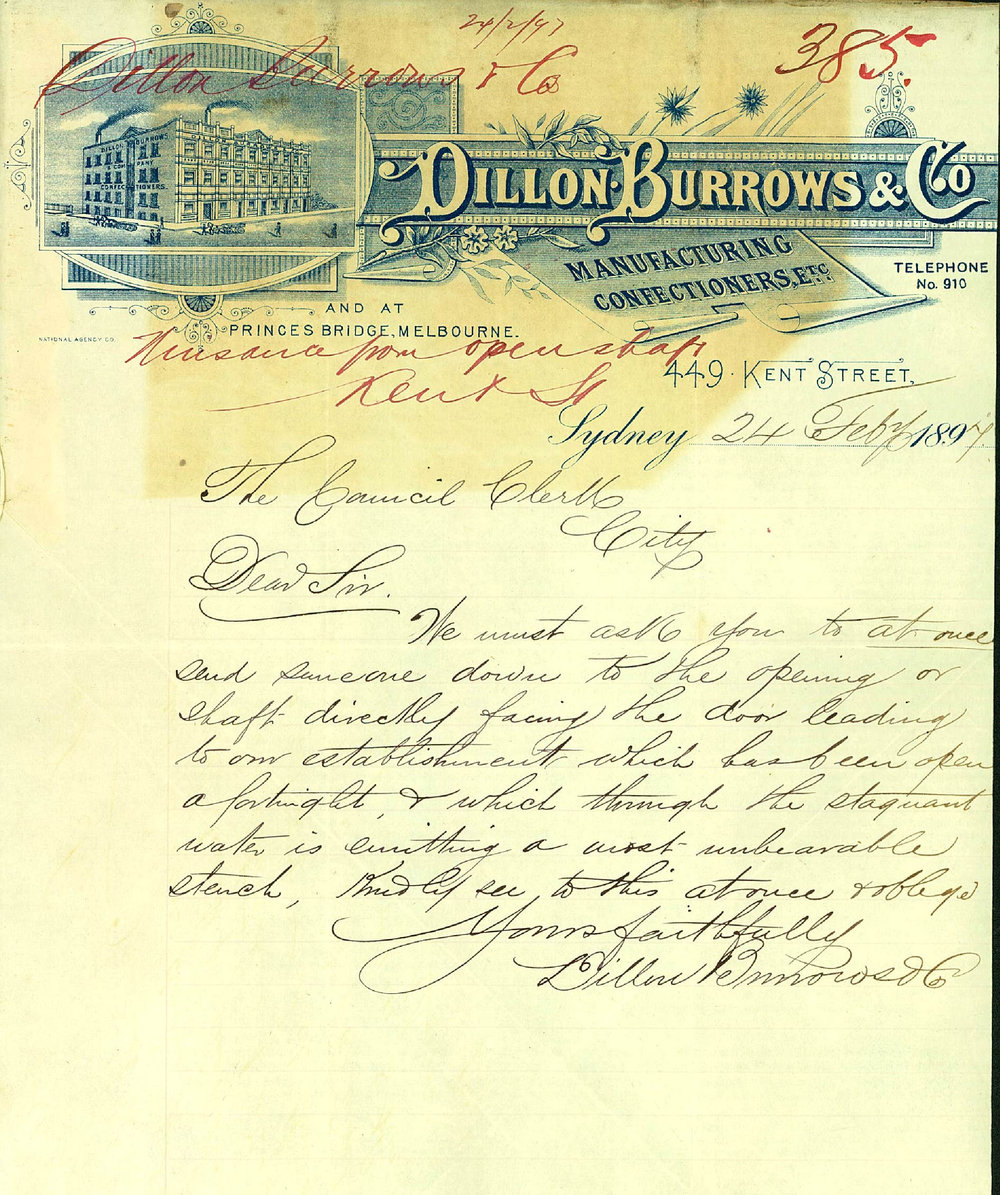 24/2/97
Dillon Burrows & Co
385.
DILLON BURROWS
COMPANY
CONFECTIONERS.
DILLON·BURROWS & Co
MANUFACTURING
CONFECTIONERS, ETC.
TELEPHONE
No. 910
AND AT
PRINCES BRIDGE, MELBOURNE.
NATIONAL AGENCY CO.
Nuisance from open shaft
Kent St
449 · KENT STREET,
Sydney 24 Feby 1897.
The Council Clerk
City
Dear Sir.
We must ask you to at once
send someone down to the opening or
shaft directly facing the door leading
to our establishment which has been open
a fortnight, & which through the stagnant
water is emitting a most unbearable
stench, Kindly see to this at once & oblige
Yours faithfully
Dillon Burrows & Co